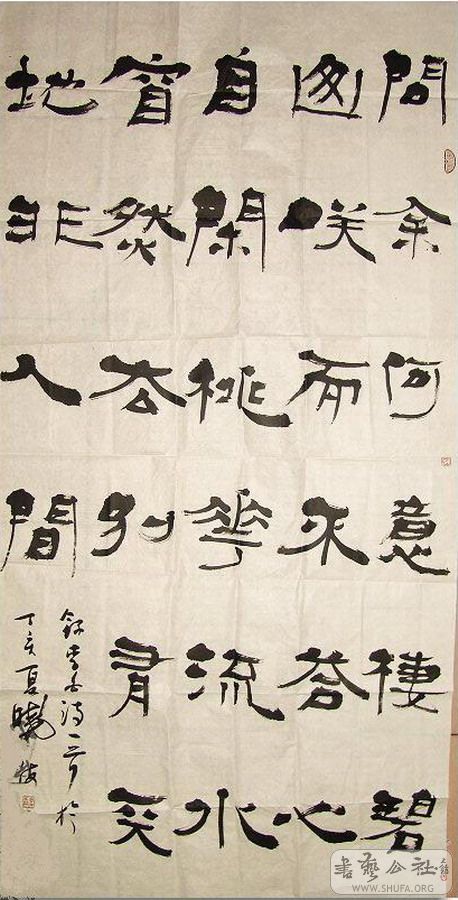 問余何意棲碧
山咲而不荅心
自閑桃華流水
窅然去別有天
地非人間
錄李白詩一首於
丁亥夏曉
書藝公社
WWW.SHUFA.ORG